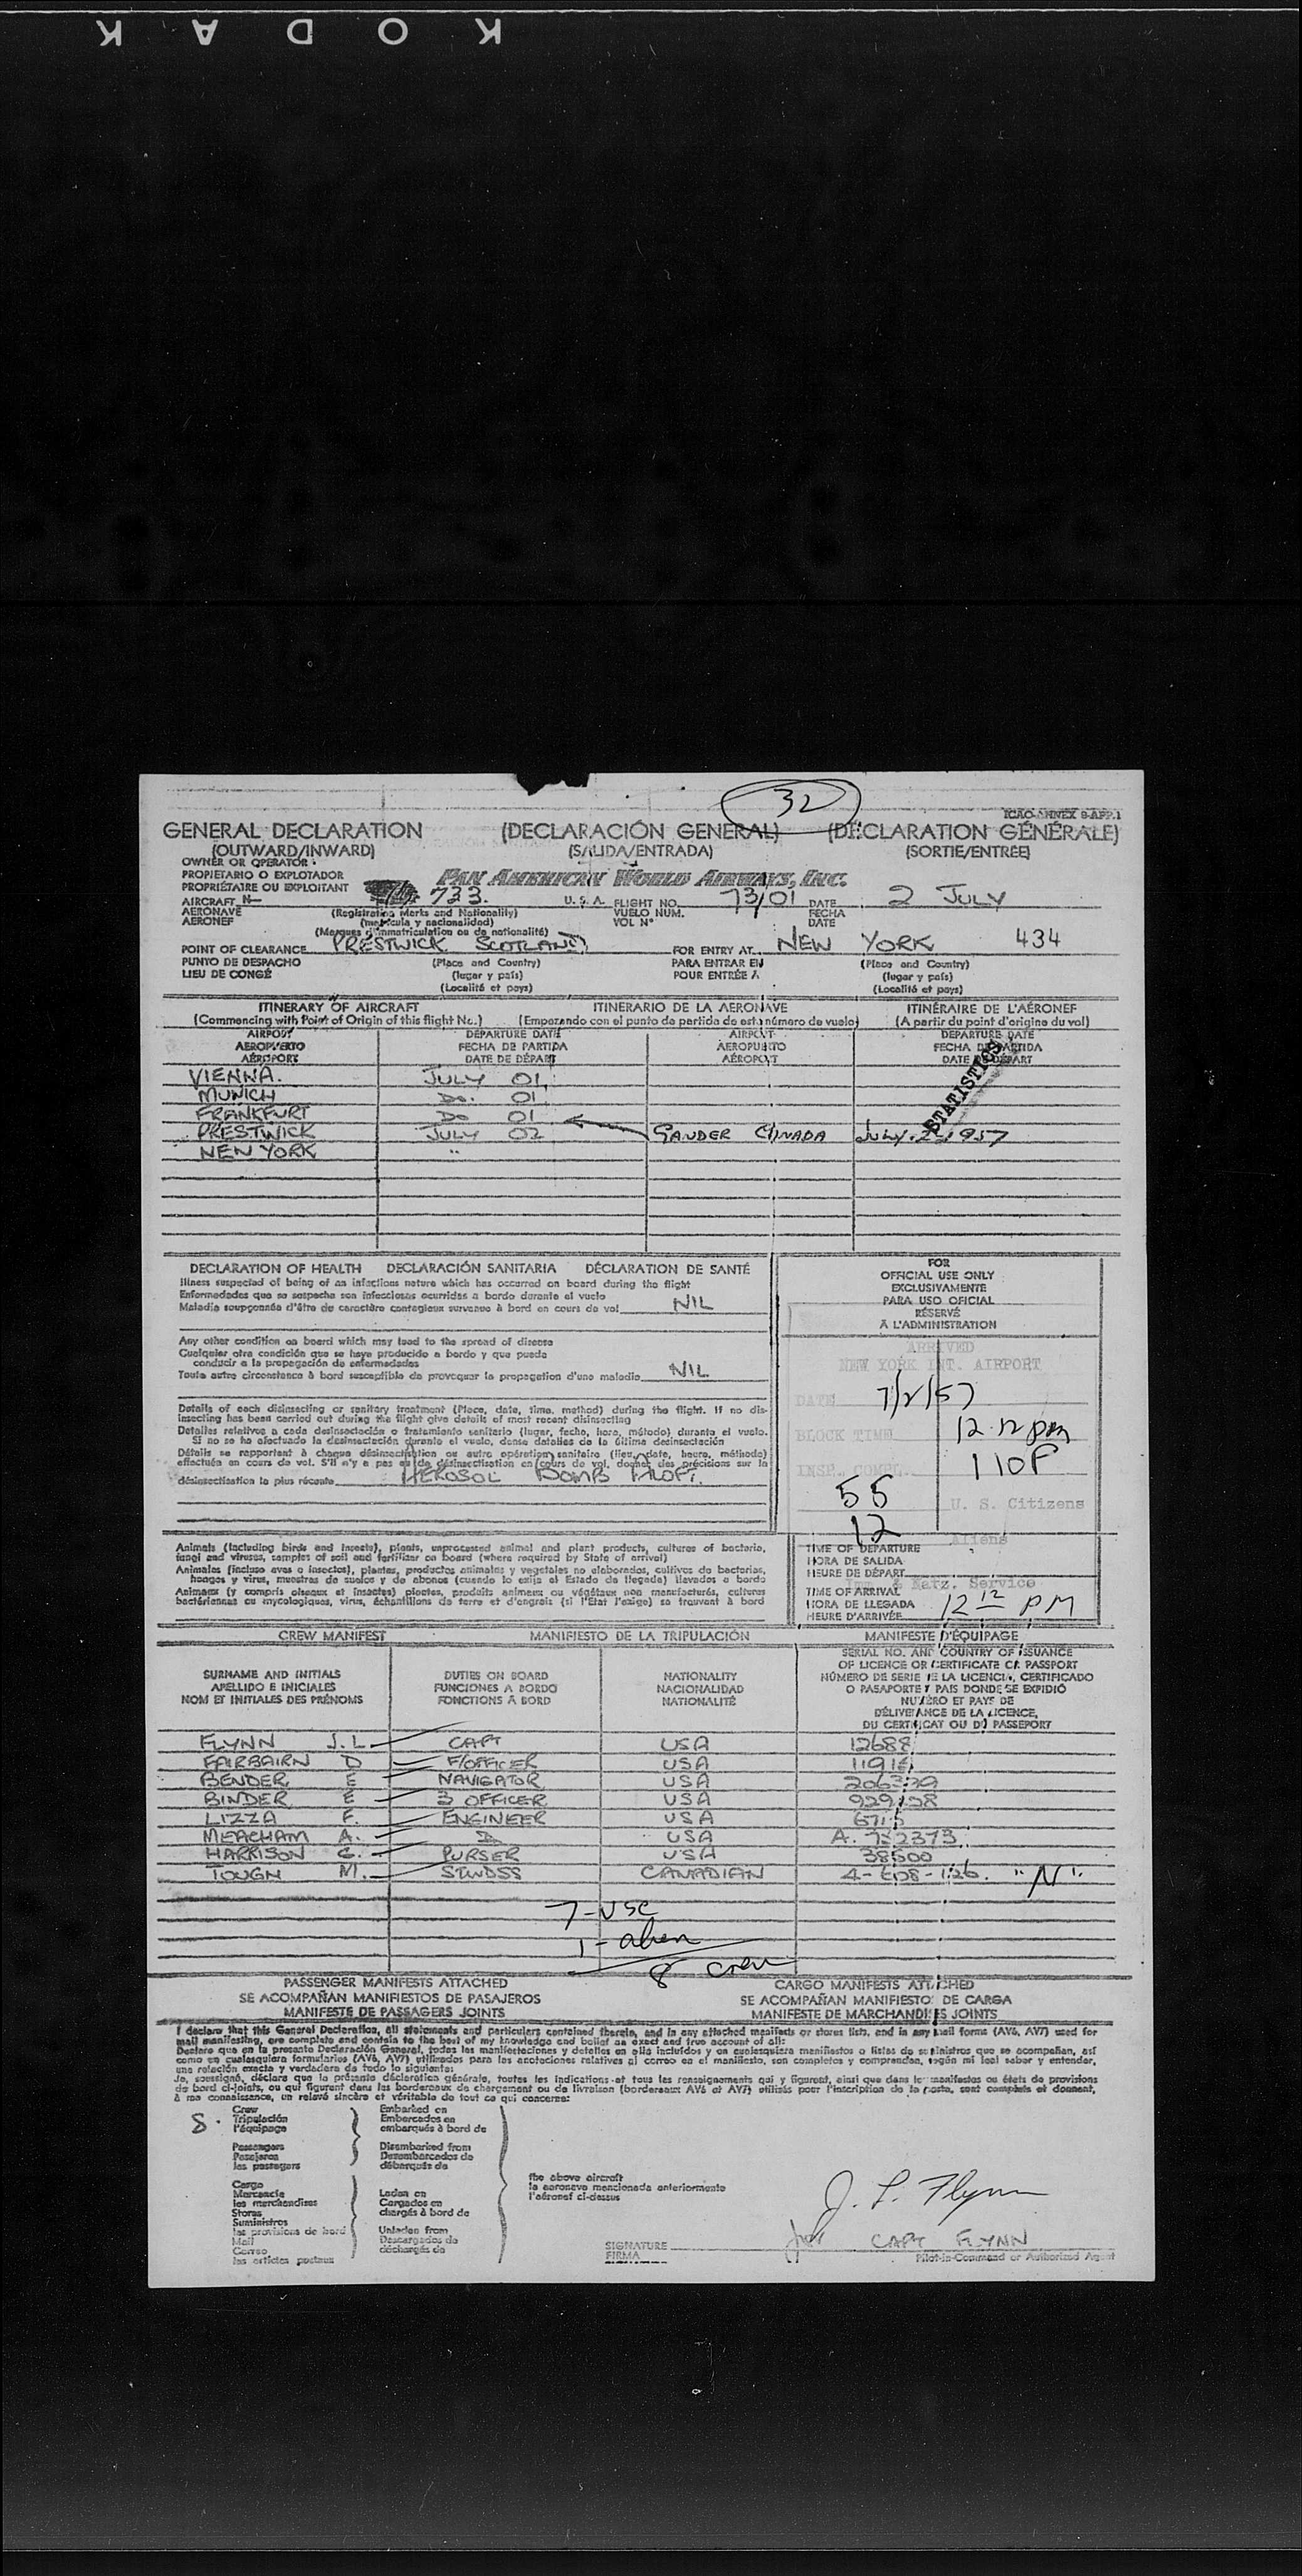 KODAK
32
ICAO-ANNEX 9-APP.1
GENERAL DECLARATION (DECLARACIÓN GENERAL) (DÉCLARATION GÉNÉRALE)
(OUTWARD/INWARD) (SALIDA/ENTRADA) (SORTIE/ENTRÉE)
OWNER OR OPERATOR
PROPIETARIO O EXPLOTADOR
PROPRIÉTAIRE OU EXPLOITANT
PAN AMERICAN WORLD AIRWAYS, INC.
AIRCRAFT N- 733. U.S.A. FLIGHT NO. 73/01 DATE 2 JULY
AERONAVE (Registration Marks and Nationality) VUELO NUM. FECHA
AERONEF (matrícula y nacionalidad) VOL N° DATE
(Marques d'immatriculation ou de nationalité)
POINT OF CLEARANCE PRESTWICK SCOTLAND FOR ENTRY AT NEW YORK 434
PUNTO DE DESPACHO (Place and Country) PARA ENTRAR EN (Place and Country)
LIEU DE CONGÉ (lugar y país) POUR ENTRÉE À (lugar y país)
(Localité et pays) (Localité et pays)
ITINERARY OF AIRCRAFT ITINERARIO DE LA AERONAVE ITINÉRAIRE DE L'AÉRONEF
(Commencing with Point of Origin of this flight No.) (Empezando con el punto de partida de este número de vuelo) (A partir du point d'origine du vol)
AIRPORT DEPARTURE DATE AIRPORT DEPARTURE DATE
AEROPUERTO FECHA DE PARTIDA AEROPUERTO FECHA DE PARTIDA
AÉROPORT DATE DE DÉPART AÉROPORT DATE DE DÉPART
STATISTICS
VIENNA. JULY 01
MUNICH Do. 01
FRANKFURT Do 01
PRESTWICK JULY 02 GANDER CANADA JULY.2.1957
NEW YORK "
DECLARATION OF HEALTH DECLARACIÓN SANITARIA DÉCLARATION DE SANTÉ
Illness suspected of being of an infectious nature which has occurred on board during the flight
Enfermedades que se sospecha son infecciosas ocurridas a bordo durante el vuelo
Maladie soupçonnée d'être de caractère contagieux survenue à bord en cours de vol NIL
Any other condition on board which may lead to the spread of disease
Cualquier otra condición que se haya producido a bordo y que pueda
conducir a la propagación de enfermedades
Toute autre circonstance à bord susceptible de provoquer la propagation d'une maladie NIL
Details of each disinsecting or sanitary treatment (Place, date, time, method) during the flight. If no dis-
insecting has been carried out during the flight give details of most recent disinsecting
Detalles relativos a cada desinsectación o tratamiento sanitario (lugar, fecha, hora, método) durante el vuelo.
Si no se ha efectuado la desinsectación durante el vuelo, dense detalles de la última desinsectación
Détails se rapportant à chaque désinsectisation ou autre opération sanitaire (lieu, date, heure, méthode)
effectuée en cours de vol. S'il n'y a pas eu de désinsectisation en cours de vol, donner des précisions sur la
désinsectisation la plus récente AEROSOL BOMB ALOFT.
FOR
OFFICIAL USE ONLY
EXCLUSIVAMENTE
PARA USO OFICIAL
RÉSERVÉ
À L'ADMINISTRATION
ARRIVED
NEW YORK INT. AIRPORT
DATE 7/2/57
BLOCK TIME 12.12 pm
INSP. COMPL. 1 10P
55 U. S. Citizens
12 Aliens
Animals (including birds and insects), plants, unprocessed animal and plant products, cultures of bacteria,
fungi and viruses, samples of soil and fertilizer on board (where required by State of arrival)
Animales (incluso aves o insectos), plantas, productos animales y vegetales no elaborados, cultivos de bacterias,
hongos y virus, muestras de suelos y de abonos (cuando lo exija el Estado de llegada) llevados a bordo
Animaux (y compris oiseaux et insectes) plantes, produits animaux ou végétaux non manufacturés, cultures
bactériennes ou mycologiques, virus, échantillons de terre et d'engrais (si l'Etat l'exige) se trouvant à bord
TIME OF DEPARTURE
HORA DE SALIDA
HEURE DE DÉPART
& Natz. Service
TIME OF ARRIVAL
HORA DE LLEGADA 12 12 PM
HEURE D'ARRIVÉE
CREW MANIFEST MANIFIESTO DE LA TRIPULACIÓN MANIFESTE D'ÉQUIPAGE
SURNAME AND INITIALS DUTIES ON BOARD NATIONALITY
APELLIDO E INICIALES FUNCIONES A BORDO NACIONALIDAD
NOM ET INITIALES DES PRÉNOMS FONCTIONS À BORD NATIONALITÉ
SERIAL NO. AND COUNTRY OF ISSUANCE
OF LICENCE OR CERTIFICATE OR PASSPORT
NÚMERO DE SERIE DE LA LICENCIA, CERTIFICADO
O PASAPORTE Y PAIS DONDE SE EXPIDIÓ
NUMÉRO ET PAYS DE
DÉLIVRANCE DE LA LICENCE,
DU CERTIFICAT OU DU PASSEPORT
FLYNN J.L. CAPT USA 12688
FAIRBAIRN D F/OFFICER USA
BENDER E NAVIGATOR USA
BINDER E 3 OFFICER USA
LIZZA F. ENGINEER USA
MEACHAM A. USA
HARRISON G. PURSER USA 38500
TOUGH M. STWDSS CANADIAN "N"
7-USC
1-alien
8 crew
PASSENGER MANIFESTS ATTACHED CARGO MANIFESTS ATTACHED
SE ACOMPAÑAN MANIFIESTOS DE PASAJEROS SE ACOMPAÑAN MANIFIESTOS DE CARGA
MANIFESTE DE PASSAGERS JOINTS MANIFESTE DE MARCHANDISES JOINTS
I declare that this General Declaration, all statements and particulars contained therein, and in any attached manifests or stores lists, and in any mail forms (AV6, AV7) used for
mail manifesting, are complete and contain to the best of my knowledge and belief an exact and true account of all:
Declaro que en la presente Declaración General, todas las manifestaciones y detalles en ella incluidos y en cualesquiera manifiestos o listas de suministros que se acompañan, así
como en cualesquiera formularios (AV6, AV7) utilizados para las anotaciones relativas al correo en el manifiesto, son completos y comprenden, según mi leal saber y entender,
una relación exacta y verdadera de todo lo siguiente:
Je, soussigné, déclare que la présente déclaration générale, toutes les indications et tous les renseignements qui y figurent, ainsi que dans les manifestes ou états de provisions
de bord ci-joints, ou qui figurent dans les bordereaux de chargement ou de livraison (bordereaux AV6 et AV7) utilisés pour l'inscription de la poste, sont complets et donnent,
à ma connaissance, un relevé sincère et véritable de tout ce qui concerne:
8. Crew Embarked on
Tripulación Embarcados en
l'équipage embarqués à bord de
Passengers Disembarked from
Pasajeros Desembarcados de
les passagers débarqués de
Cargo
Mercancía Laden on
les merchandises Cargados en
Stores chargés à bord de
Suministros
les provisions de bord Unladen from
Mail Descargados de
Correo déchargés de
les articles postaux
the above aircraft
la aeronave mencionada anteriormente
l'aéronef ci-dessus
J. L. Flynn
SIGNATURE CAPT FLYNN
FIRMA Pilot-in-Command or Authorized Agent